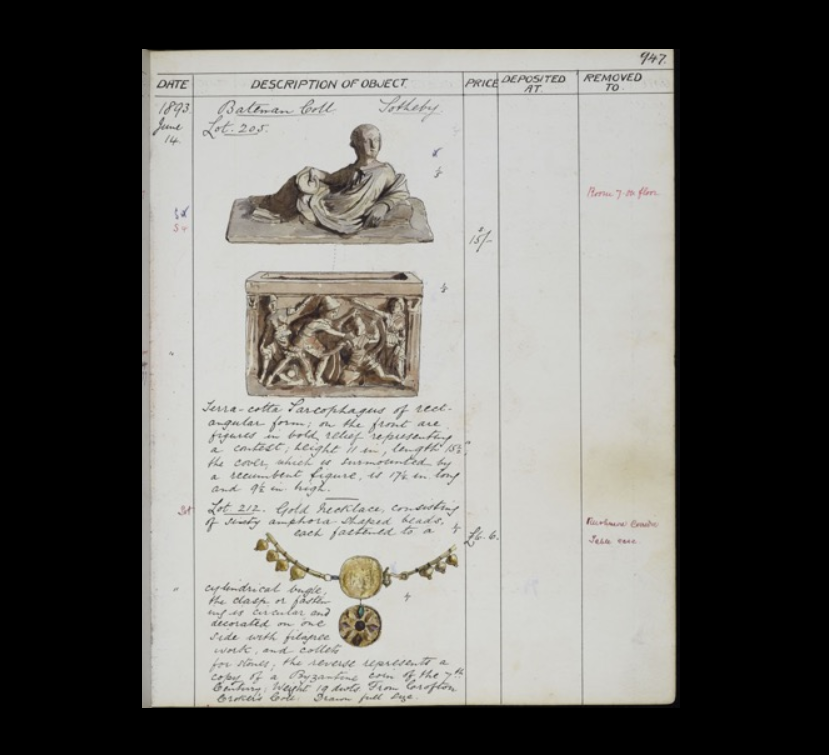 947.
DATE DESCRIPTION OF OBJECT PRICE DEPOSITED AT. REMOVED TO.
1893 Bateman Coll Sotheby.
June Lot. 205.
14.
Room 7. floor
15/-
Terra-cotta Sarcophagus of rect-
angular form; on the front are
figures in bold relief representing
a contest; height 11 in, length 15½
the cover, which is surmounted by
a recumbent figure, is 17½ in. long
and 9½ in. high.
Lot. 212. Gold Necklace, consisting
of sixty amphora-shaped beads,
each fastened to a
£6. 6.
cylindrical bugle,
the clasp or fasten-
ing is circular and
decorated on one
side with filagree
work, and collets
for stones; the reverse represents a
copy of a Byzantine coin of the 7th
Century. Weight 19 dwts. From Crofton
Croker's Coll. Drawn full size.